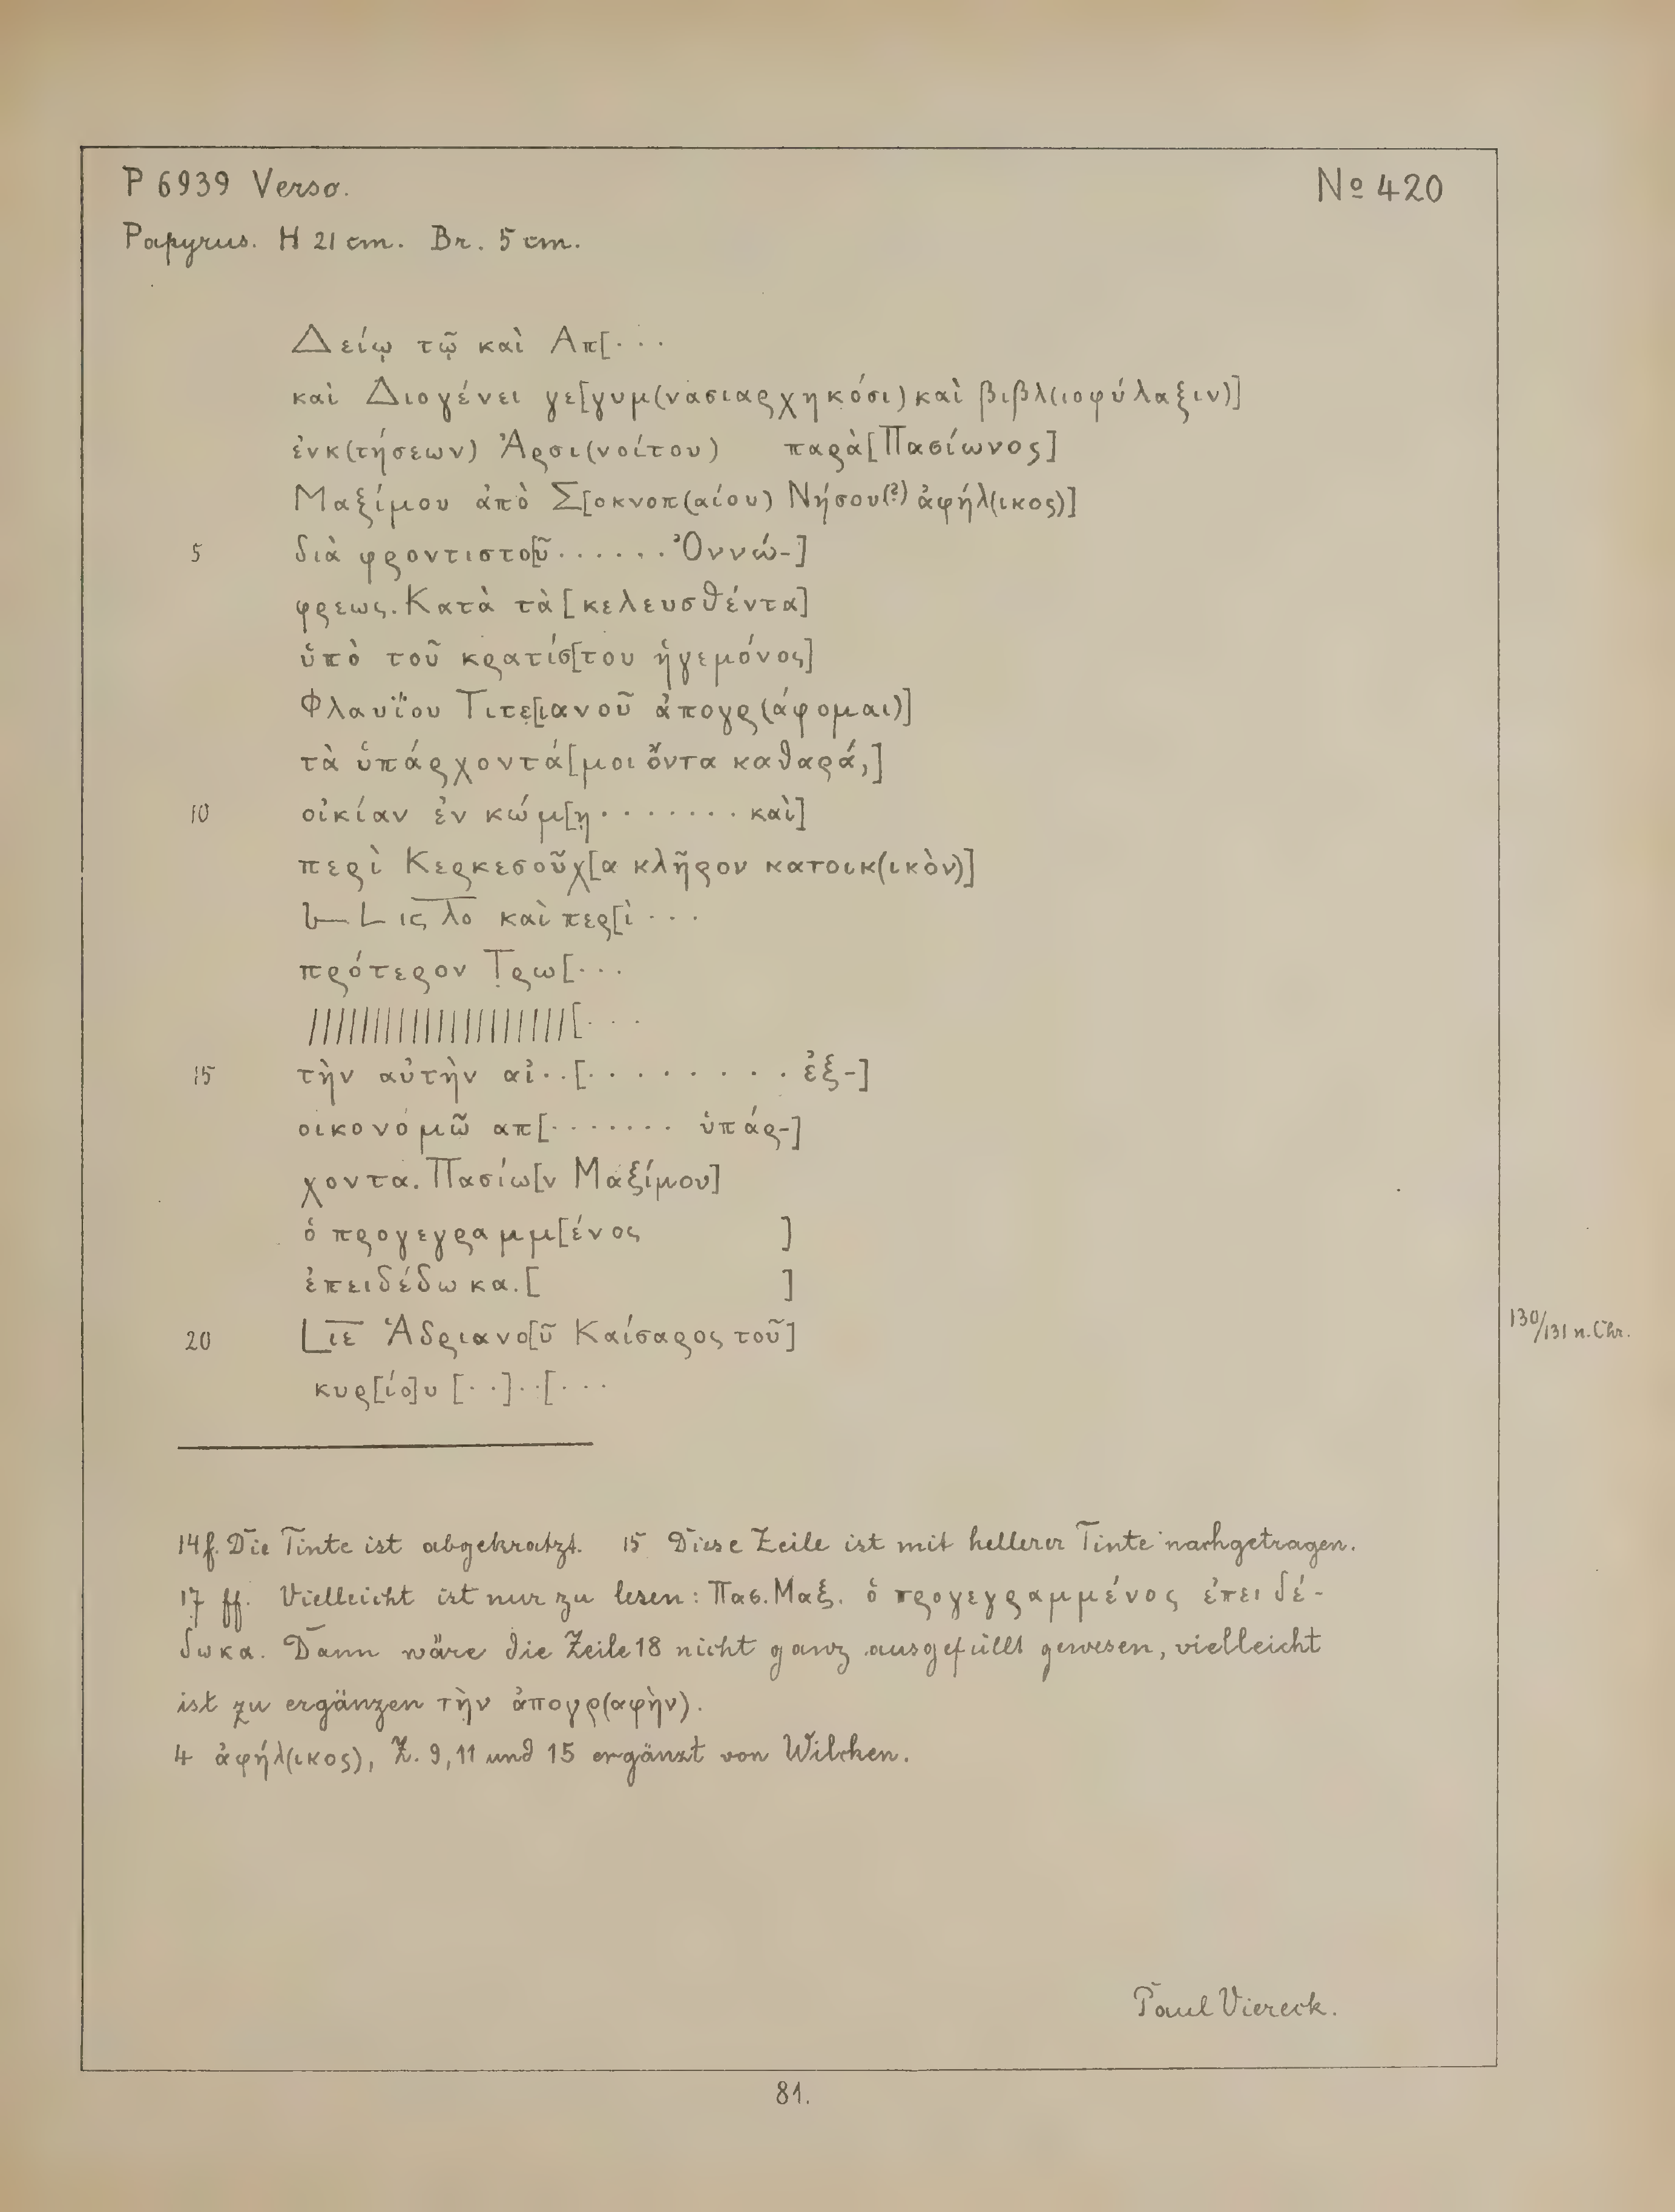 P 6939 Verso.
No 420
Papyrus. H 21 cm. Br. 5 cm.
Δείῳ τῷ καὶ Απ[...
καὶ Διογένει γε[γυμ(νασιαρχηκόσι) καὶ βιβλ(ιοφύλαξιν)]
ἐνκ(τήσεων) Ἀρσι(νοίτου) παρὰ [Πασίωνος]
Μαξίμου ἀπὸ Σ[οκνοπ(αίου) Νήσου(?) ἀφήλ(ικος)]
5 διὰ φροντιστο[ῦ ...... Ὀννώ-]
φρεως. Κατὰ τὰ [κελευσθέντα]
ὑπὸ τοῦ κρατίσ[του ἡγεμόνος]
Φλαυΐου Τιτε[ιανοῦ ἀπογρ(άφομαι)]
τὰ ὑπάρχοντά [μοι ὄντα καθαρά,]
10 οἰκίαν ἐν κώμ[ῃ ....... καὶ]
περὶ Κερκεσοῦχ[α κλῆρον κατοικ(ικὸν)]
L ις λο καὶ περ[ὶ ...
πρότερον Τ̣ρω[...
////////////////////[...
15 τὴν αὐτὴν αἰ..[......... ἐξ-]
οικονομῶ απ[....... ὑπάρ-]
χοντα. Πασίω[ν Μαξίμου]
ὁ προγεγραμμ[ένος ]
ἐπειδέδωκα. [ ]
20 L ιε Ἁδριανο[ῦ Καίσαρος τοῦ]
130/131 n. Chr.
κυρ[ίο]υ [..]..[...
14f. Die Tinte ist abgekratzt. 15 Diese Zeile ist mit hellerer Tinte nachgetragen.
17 ff. Vielleicht ist nur zu lesen: Πασ. Μαξ. ὁ προγεγραμμένος ἐπειδέ-
δωκα. Dann wäre die Zeile 18 nicht ganz ausgefüllt gewesen, vielleicht
ist zu ergänzen τὴν ἀπογρ(αφὴν).
4 ἀφήλ(ικος), Z. 9, 11 und 15 ergänzt von Wilcken.
Paul Viereck.
81.